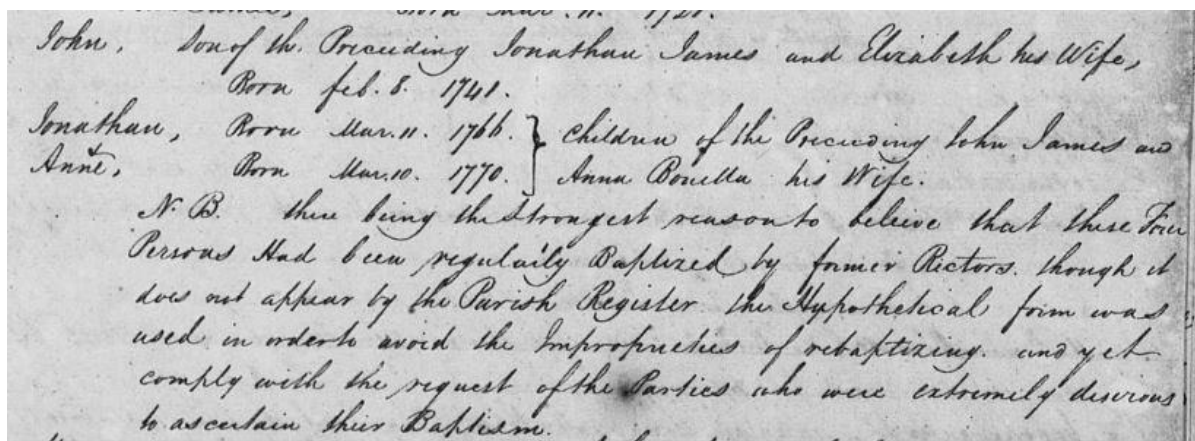 Born Mar. 11. 1721.
John, Son of th. Preceeding Jonathan James and Elizabeth his Wife,
Born feb. 8. 1741.
Jonathan, Born Mar. 11. 1766. } Children of the Preceeding John James and
& Anne, Born Mar. 10. 1770. } Anna Bonella his Wife.
N. B. there being the Strongest reason to beleive that these Four
Persons Had been regularly Baptized by former Rectors. though it
does not appear by the Parish Register the Hypothetical form was
used in order to avoid the Improprieties of rebaptizing. and yet
comply with the request of the Parties who were extremely desirous
to ascertain their Baptism.